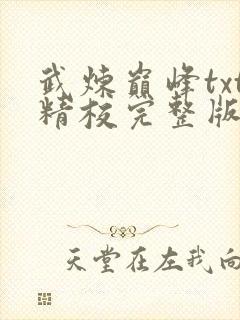 武炼巅峰txt
精校完整版
天堂在左我向